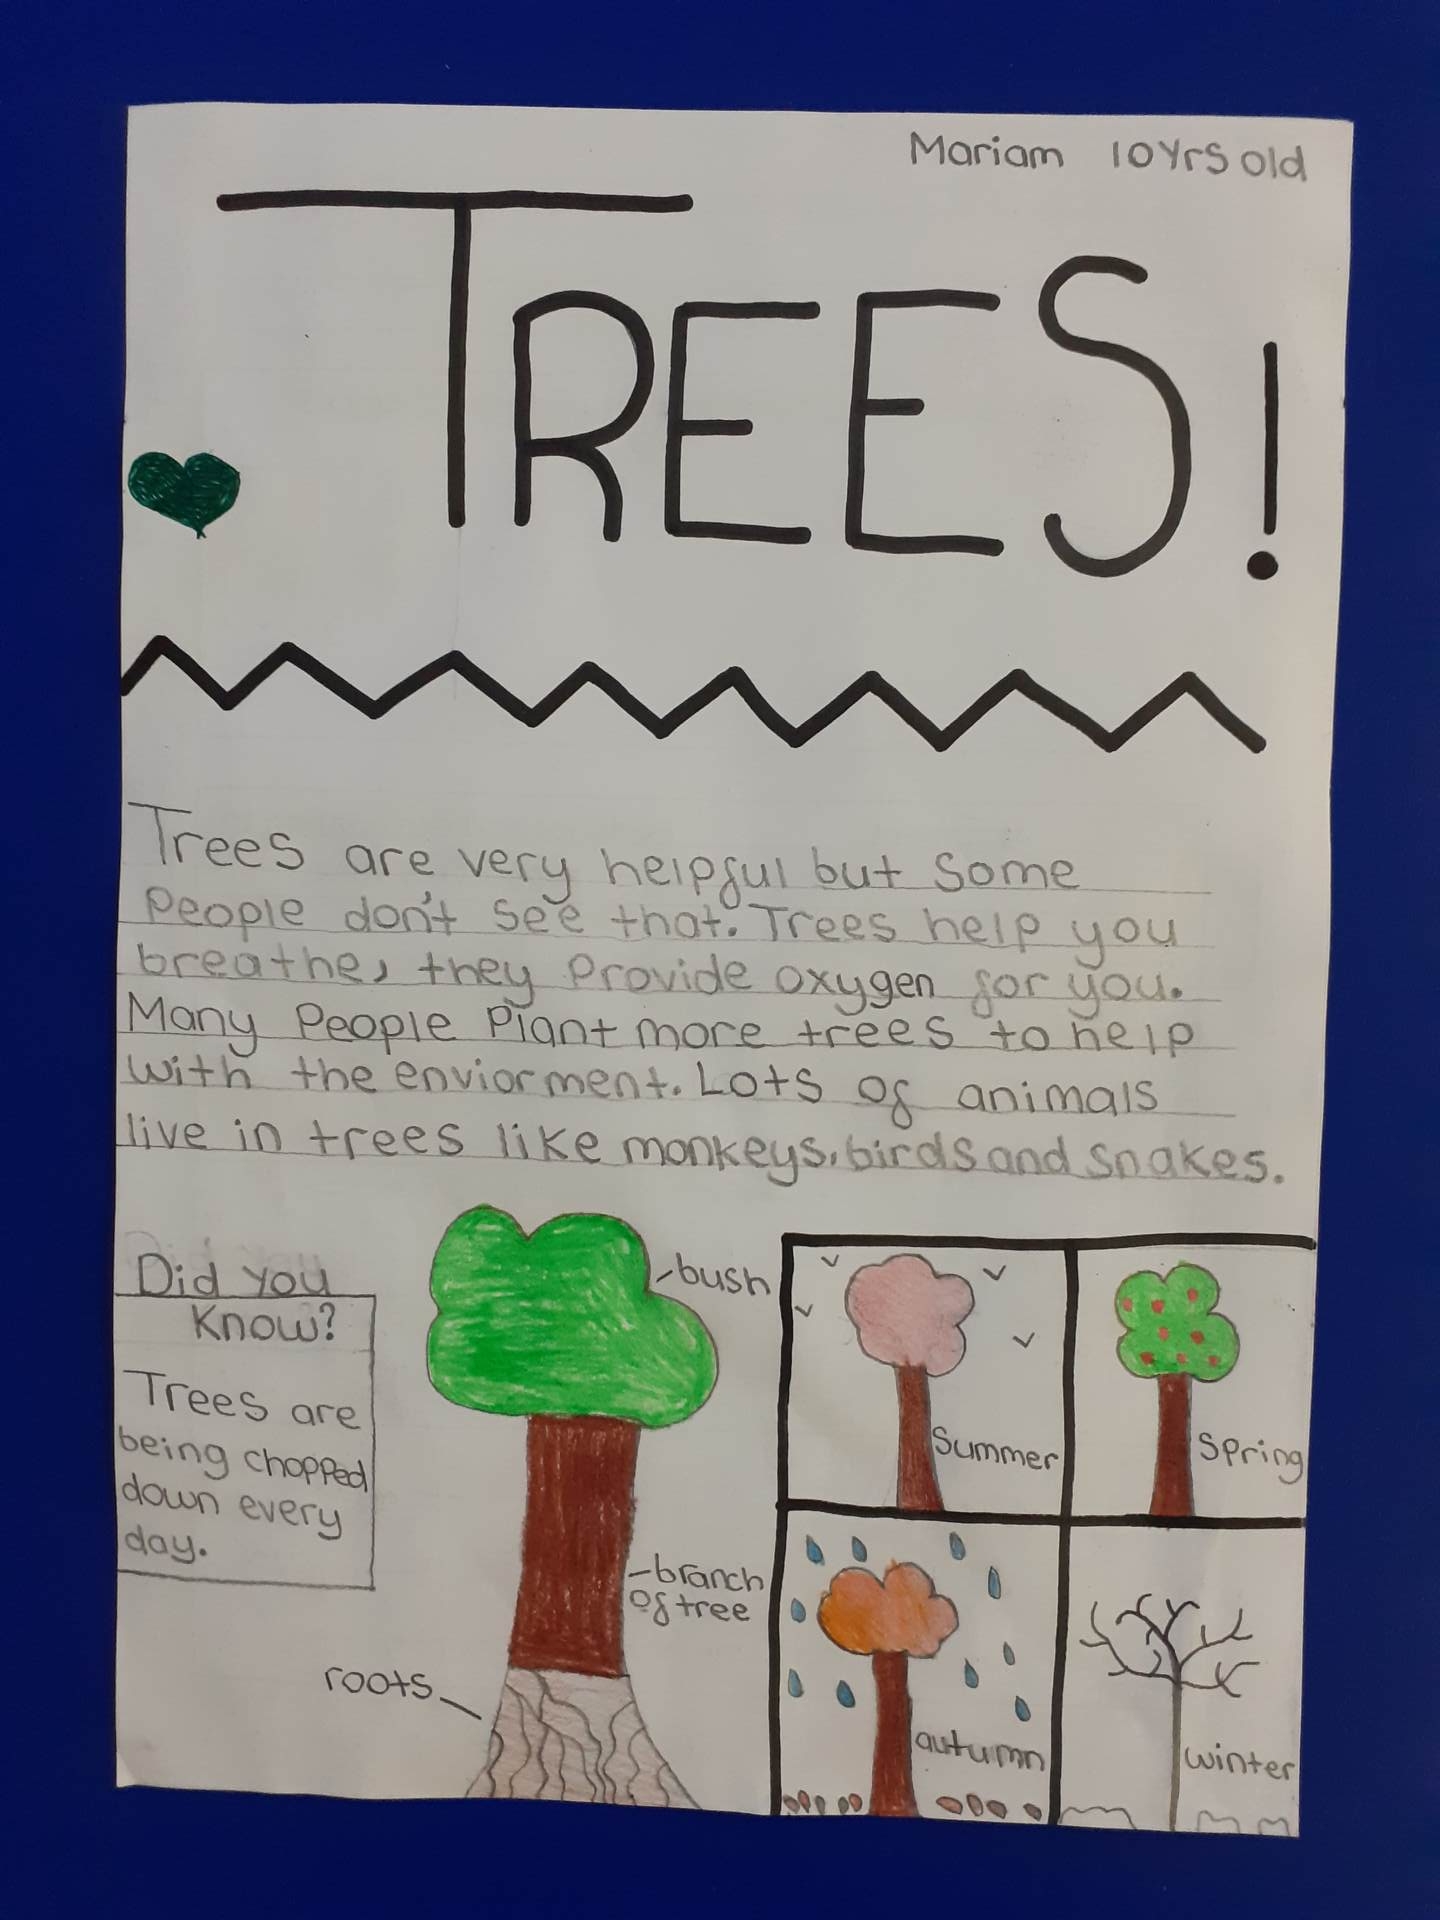 Mariam 10Yrs old
TREES!
Trees are very helpful but some
People don't see that. Trees help you
breathe, they Provide oxygen for you.
Many People Plant more trees to help
with the enviorment. Lots of animals
live in trees like monkeys, birds and snakes.
Did you
Know?
Trees are
being chopped
down every
day.
bush
branch
of tree
roots
Summer
Spring
autumn
winter